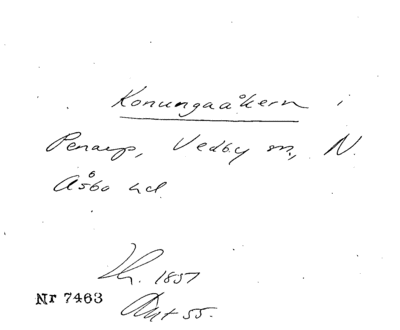 Konungaåkern i
Perarp, Vedby sn., N.
Åsbo hd.
1857
Nr 7463
Akt 55.